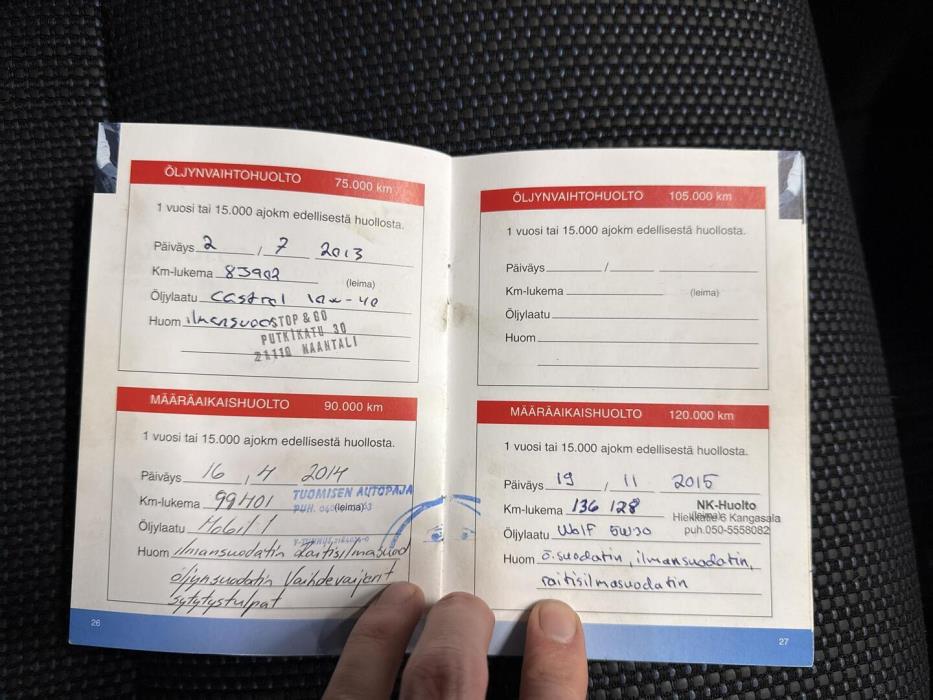 ÖLJYNVAIHTOHUOLTO 75.000 km
1 vuosi tai 15.000 ajokm edellisestä huollosta.
Päiväys 2 / 7 2013
Km-lukema 83902 (leima)
Öljylaatu Castrol 10w-40
Huom ilmansuod
STOP & GO
PUTKIKATU 30
21110 NAANTALI
MÄÄRÄAIKAISHUOLTO 90.000 km
1 vuosi tai 15.000 ajokm edellisestä huollosta.
Päiväys 16 , 4 2014
Km-lukema 99401 (leima)
TUOMISEN AUTOPAJA
PUH.
Öljylaatu Mobil 1
Huom ilmansuodatin Raitisilmasuod
öljynsuodatin Vaihdevaijerit
sytytystulpat
26
ÖLJYNVAIHTOHUOLTO 105.000 km
1 vuosi tai 15.000 ajokm edellisestä huollosta.
Päiväys /
Km-lukema (leima)
Öljylaatu
Huom
MÄÄRÄAIKAISHUOLTO 120.000 km
1 vuosi tai 15.000 ajokm edellisestä huollosta.
Päiväys 19 / 11 2015
Km-lukema 136 128 (leima)
NK-Huolto
Hiekkatie 6 Kangasala
puh.050-5558082
Öljylaatu Wolf 5W30
Huom ö.suodatin, ilmansuodatin,
raitisilmasuodatin
27